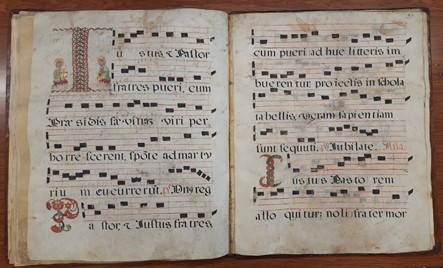 Iustus & Pastor
fratres pueri, cum
Præsidis sæuitiam viri per
horrescerent, spõte ad marty
rium cucurrerũt. ℣ Dñs reg
Pastor, & Iustus fratres
cum pueri adhuc litteris im
buerentur, proiectis in schola
tabellis, veram sapientiam
sunt sequuti. ℣ Iubilate. Aña.
Iustus Pastorem
alloquitur; noli frater mor